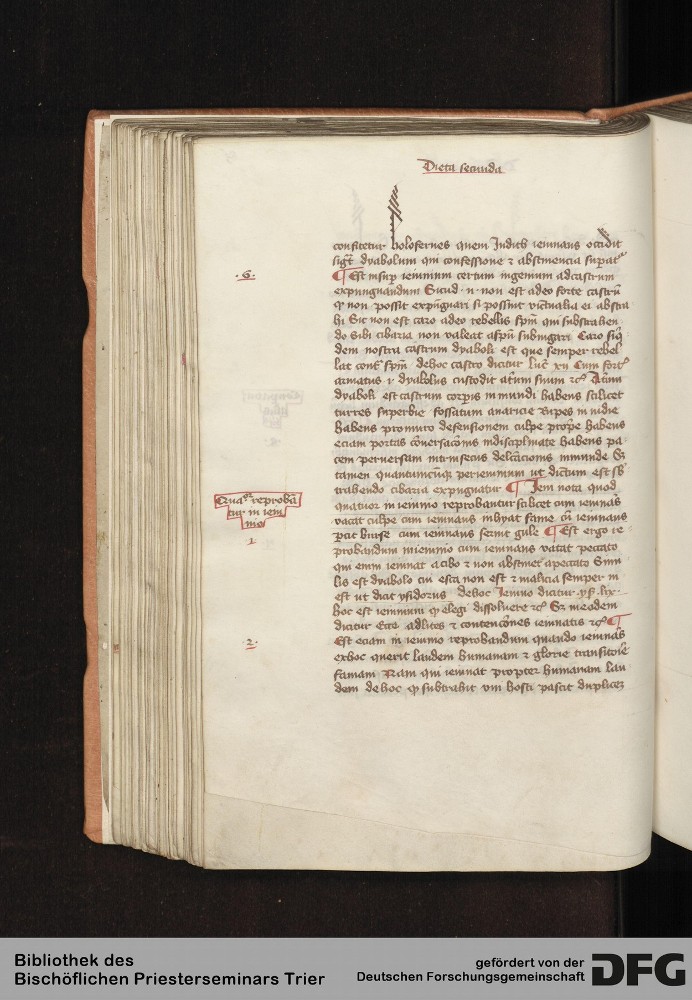 Dieta secunda
consitetur holofernes quem Judith ieiunans occidit
sigt dyabolum qui confessione et abstinencia supat
.6.
¶ Est insup ieiunium certum ingenium ad castrum
expungnandum Sicud .n. non est adeo forte castru
q non possit expungnari si possint victualia ei abstra
hi Sic non est caro adeo rebellis spm qui substrahen
do sibi cibaria non valeat aspu subiugari Caro siqi
dem nostra castrum dyaboli est que semper rebel
lat cont spm de hoc castro dicitur luc xii Cum fort
armatus i dyabolus custodit atrium suum rc Atrium
dyaboli est castrum corpis in mundi habens scilicet
turres superbie fossatum auaricie Rupes inuidie
habens pro muro defensionem culpe prope habens
eciam portas conuersacois indisciplinate habens pa
cem peruersam intrinsecus delectacionis inmunde Et
tamen quantumcuq per ieiunium ut dictum est sb
trahendo cibaria expugnatur ¶ Item nota quod
Qua reproba
tur in ieiu
nio
quatuor in ieiunio reprobantur scilicet cum ieiunas
vacat culpe cum ieiunans inhyat fame cu ieiunans
1
pcit burse cum ieiunans seruit gule ¶ Est ergo re
probandum in ieiunio cum ieiunans vacat peccato
qui enim ieiunat a cibo et non abstinet a peccato Simi
lis est dyabolo cui esca non est et malicia semper in
est ut dicit ysidorus de hoc Ieiunio dicitur ys lix
hoc est ieiunium q elegi dissoluere rc Et in eodem
dicitur Ecce ad lites et contencones ieiunatis rc ¶
.2.
Est eciam in ieiunio reprobandum quando ieiunas
ex hoc querit laudem humanam et glorie transitorie
famam Nam qui ieiunat propter humanam lau
dem de hoc q subtrahit uni hosti pascit duplicez
Bibliothek des
Bischöflichen Priesterseminars Trier
gefördert von der
Deutschen Forschungsgemeinschaft
DFG